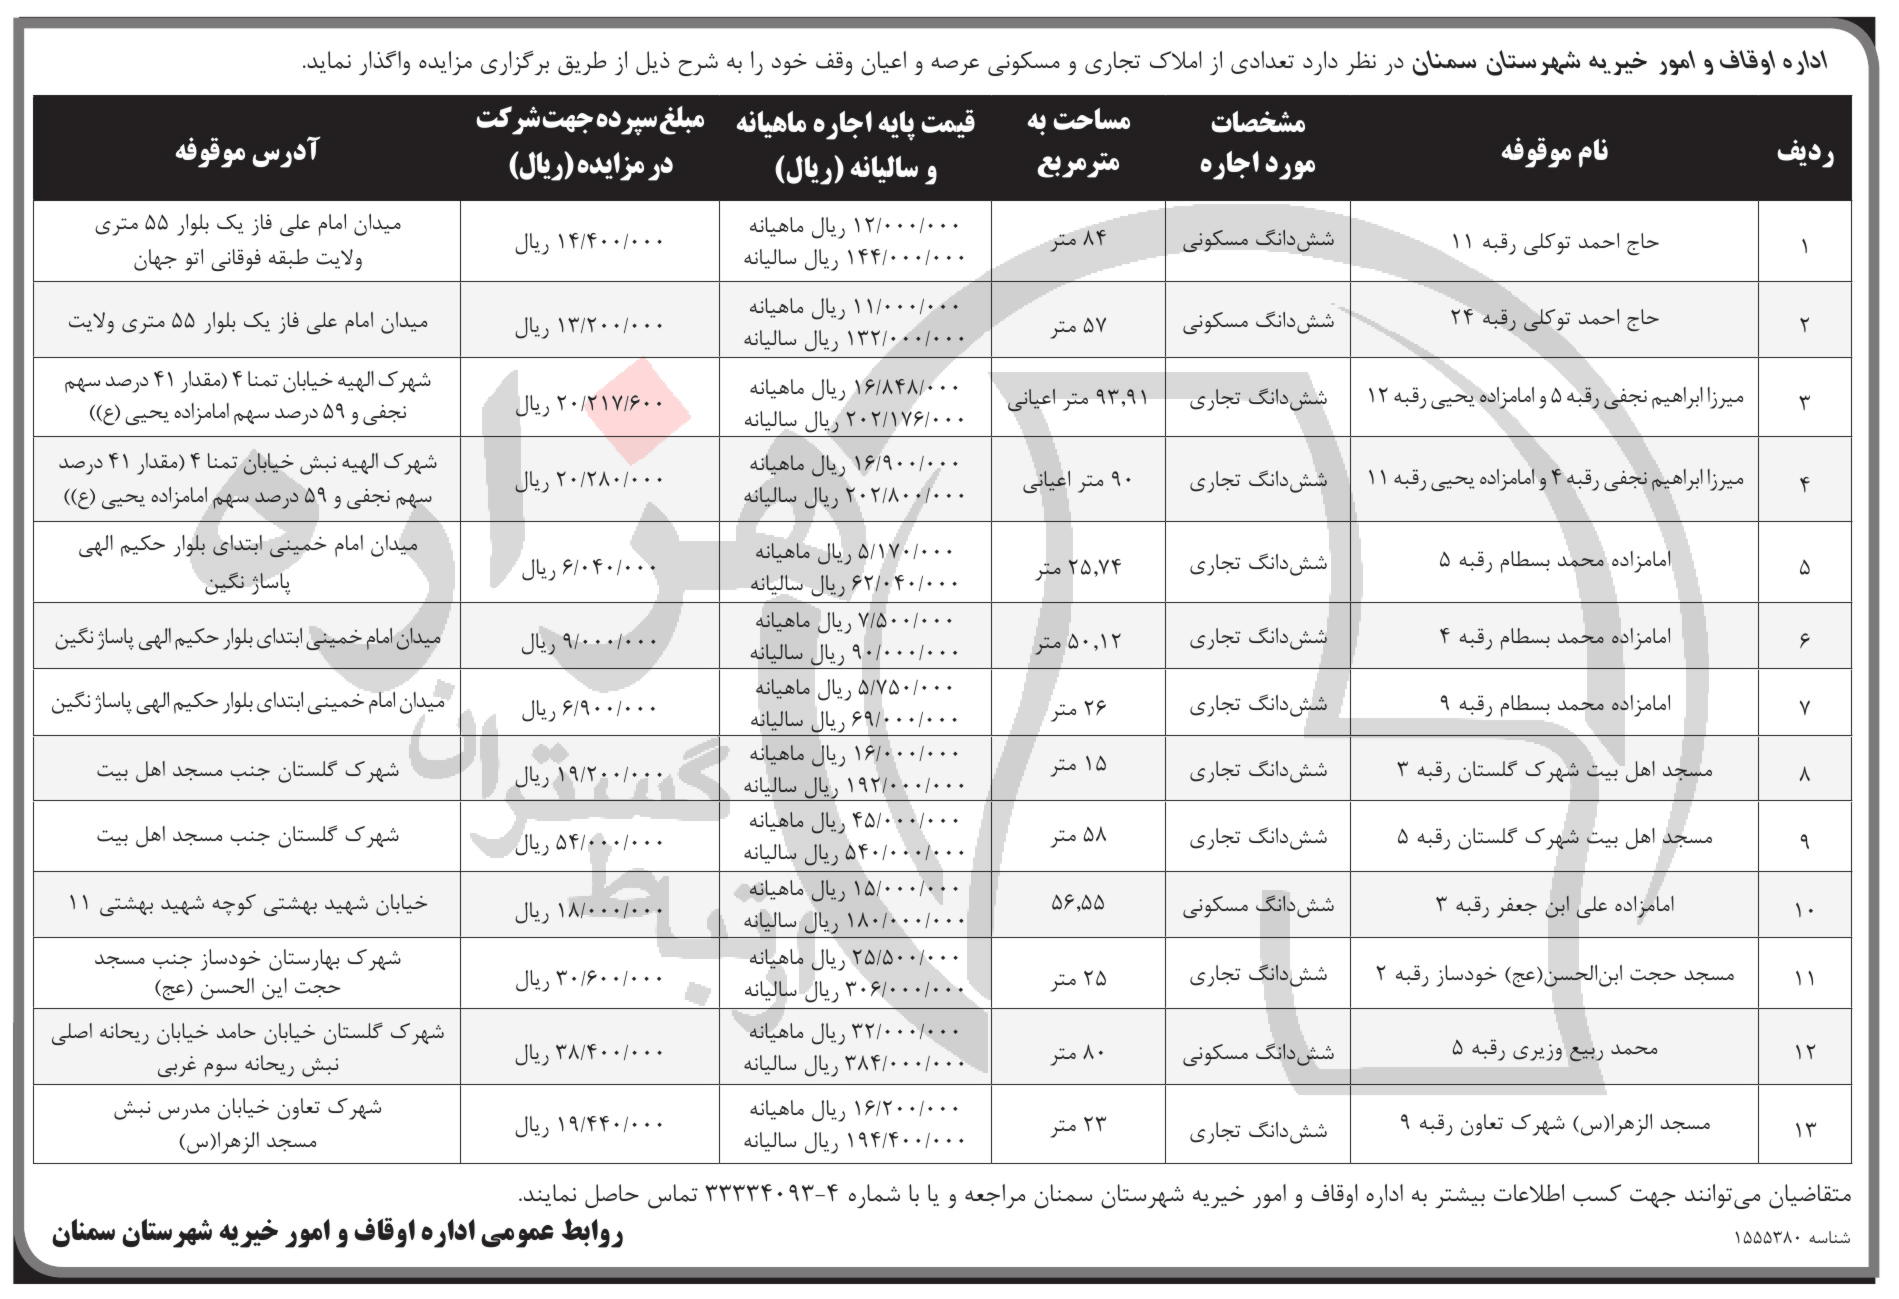 اداره اوقاف و امور خیریه شهرستان سمنان در نظر دارد تعدادی از املاک تجاری و مسکونی عرصه و اعیان وقف خود را به شرح ذیل از طریق برگزاری مزایده واگذار نماید.
ردیف
نام موقوفه
مشخصات
مورد اجاره
مساحت به
مترمربع
قیمت پایه اجاره ماهیانه
و سالیانه (ریال)
مبلغ سپرده جهت شرکت
در مزایده (ریال)
آدرس موقوفه
۱
حاج احمد توکلی رقبه ۱۱
شش‌دانگ مسکونی
۸۴ متر
۱۲/۰۰۰/۰۰۰ ریال ماهیانه
۱۴۴/۰۰۰/۰۰۰ ریال سالیانه
۱۴/۴۰۰/۰۰۰ ریال
میدان امام علی فاز یک بلوار ۵۵ متری
ولایت طبقه فوقانی اتو جهان
۲
حاج احمد توکلی رقبه ۲۴
شش‌دانگ مسکونی
۵۷ متر
۱۱/۰۰۰/۰۰۰ ریال ماهیانه
۱۳۲/۰۰۰/۰۰۰ ریال سالیانه
۱۳/۲۰۰/۰۰۰ ریال
میدان امام علی فاز یک بلوار ۵۵ متری ولایت
۳
میرزا ابراهیم نجفی رقبه ۵ و امامزاده یحیی رقبه ۱۲
شش‌دانگ تجاری
۹۳,۹۱ متر اعیانی
۱۶/۸۴۸/۰۰۰ ریال ماهیانه
۲۰۲/۱۷۶/۰۰۰ ریال سالیانه
۲۰/۲۱۷/۶۰۰ ریال
شهرک الهیه خیابان تمنا ۴ (مقدار ۴۱ درصد سهم
نجفی و ۵۹ درصد سهم امامزاده یحیی (ع))
۴
میرزا ابراهیم نجفی رقبه ۴ و امامزاده یحیی رقبه ۱۱
شش‌دانگ تجاری
۹۰ متر اعیانی
۱۶/۹۰۰/۰۰۰ ریال ماهیانه
۲۰۲/۸۰۰/۰۰۰ ریال سالیانه
۲۰/۲۸۰/۰۰۰ ریال
شهرک الهیه نبش خیابان تمنا ۴ (مقدار ۴۱ درصد
سهم نجفی و ۵۹ درصد سهم امامزاده یحیی (ع))
۵
امامزاده محمد بسطام رقبه ۵
شش‌دانگ تجاری
۲۵,۷۴ متر
۵/۱۷۰/۰۰۰ ریال ماهیانه
۶۲/۰۴۰/۰۰۰ ریال سالیانه
۶/۰۴۰/۰۰۰ ریال
میدان امام خمینی ابتدای بلوار حکیم الهی
پاساژ نگین
۶
امامزاده محمد بسطام رقبه ۴
شش‌دانگ تجاری
۵۰,۱۲ متر
۷/۵۰۰/۰۰۰ ریال ماهیانه
۹۰/۰۰۰/۰۰۰ ریال سالیانه
۹/۰۰۰/۰۰۰ ریال
میدان امام خمینی ابتدای بلوار حکیم الهی پاساژ نگین
۷
امامزاده محمد بسطام رقبه ۹
شش‌دانگ تجاری
۲۶ متر
۵/۷۵۰/۰۰۰ ریال ماهیانه
۶۹/۰۰۰/۰۰۰ ریال سالیانه
۶/۹۰۰/۰۰۰ ریال
میدان امام خمینی ابتدای بلوار حکیم الهی پاساژ نگین
۸
مسجد اهل بیت شهرک گلستان رقبه ۳
شش‌دانگ تجاری
۱۵ متر
۱۶/۰۰۰/۰۰۰ ریال ماهیانه
۱۹۲/۰۰۰/۰۰۰ ریال سالیانه
۱۹/۲۰۰/۰۰۰ ریال
شهرک گلستان جنب مسجد اهل بیت
۹
مسجد اهل بیت شهرک گلستان رقبه ۵
شش‌دانگ تجاری
۵۸ متر
۴۵/۰۰۰/۰۰۰ ریال ماهیانه
۵۴۰/۰۰۰/۰۰۰ ریال سالیانه
۵۴/۰۰۰/۰۰۰ ریال
شهرک گلستان جنب مسجد اهل بیت
۱۰
امامزاده علی ابن جعفر رقبه ۳
شش‌دانگ مسکونی
۵۶,۵۵
۱۵/۰۰۰/۰۰۰ ریال ماهیانه
۱۸۰/۰۰۰/۰۰۰ ریال سالیانه
۱۸/۰۰۰/۰۰۰ ریال
خیابان شهید بهشتی کوچه شهید بهشتی ۱۱
۱۱
مسجد حجت ابن‌الحسن(عج) خودساز رقبه ۲
شش‌دانگ تجاری
۲۵ متر
۲۵/۵۰۰/۰۰۰ ریال ماهیانه
۳۰۶/۰۰۰/۰۰۰ ریال سالیانه
۳۰/۶۰۰/۰۰۰ ریال
شهرک بهارستان خودساز جنب مسجد
حجت این الحسن (عج)
۱۲
محمد ربیع وزیری رقبه ۵
شش‌دانگ مسکونی
۸۰ متر
۳۲/۰۰۰/۰۰۰ ریال ماهیانه
۳۸۴/۰۰۰/۰۰۰ ریال سالیانه
۳۸/۴۰۰/۰۰۰ ریال
شهرک گلستان خیابان حامد خیابان ریحانه اصلی
نبش ریحانه سوم غربی
۱۳
مسجد الزهرا(س) شهرک تعاون رقبه ۹
شش‌دانگ تجاری
۲۳ متر
۱۶/۲۰۰/۰۰۰ ریال ماهیانه
۱۹۴/۴۰۰/۰۰۰ ریال سالیانه
۱۹/۴۴۰/۰۰۰ ریال
شهرک تعاون خیابان مدرس نبش
مسجد الزهرا(س)
هزاره
ارتباط گستران
متقاضیان می‌توانند جهت کسب اطلاعات بیشتر به اداره اوقاف و امور خیریه شهرستان سمنان مراجعه و یا با شماره ۴-۳۳۳۳۴۰۹۳ تماس حاصل نمایند.
شناسه ۱۵۵۵۳۸۰
روابط عمومی اداره اوقاف و امور خیریه شهرستان سمنان